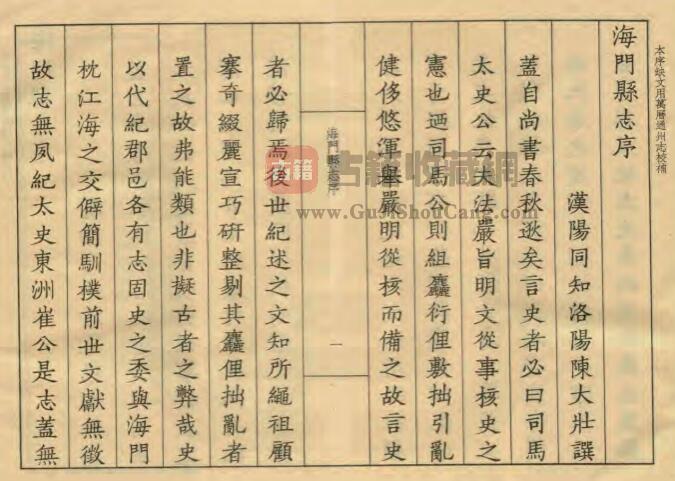 本序缺文用萬曆通州志校補
海門縣志序
漢陽同知洛陽陳大壯譔
蓋自尚書春秋逖矣言史者必曰司馬
太史公云夫法嚴旨明文從事核史之
憲也迺司馬公則組麤衍俚敷拙引亂
健侈悠渾舉嚴明從核而備之故言史
海門縣志序
一
者必歸焉後世紀述之文知所繩祖顧
搴奇綴麗宣巧硏整剔其麤俚拙亂者
置之故弗能類也非擬古者之弊哉史
以代紀郡邑各有志固史之委與海門
枕江海之交僻簡馴樸前世文獻無徵
故志無夙紀太史東洲崔公是志蓋無
古籍
古籍收藏网
www.GujiShouCang.com